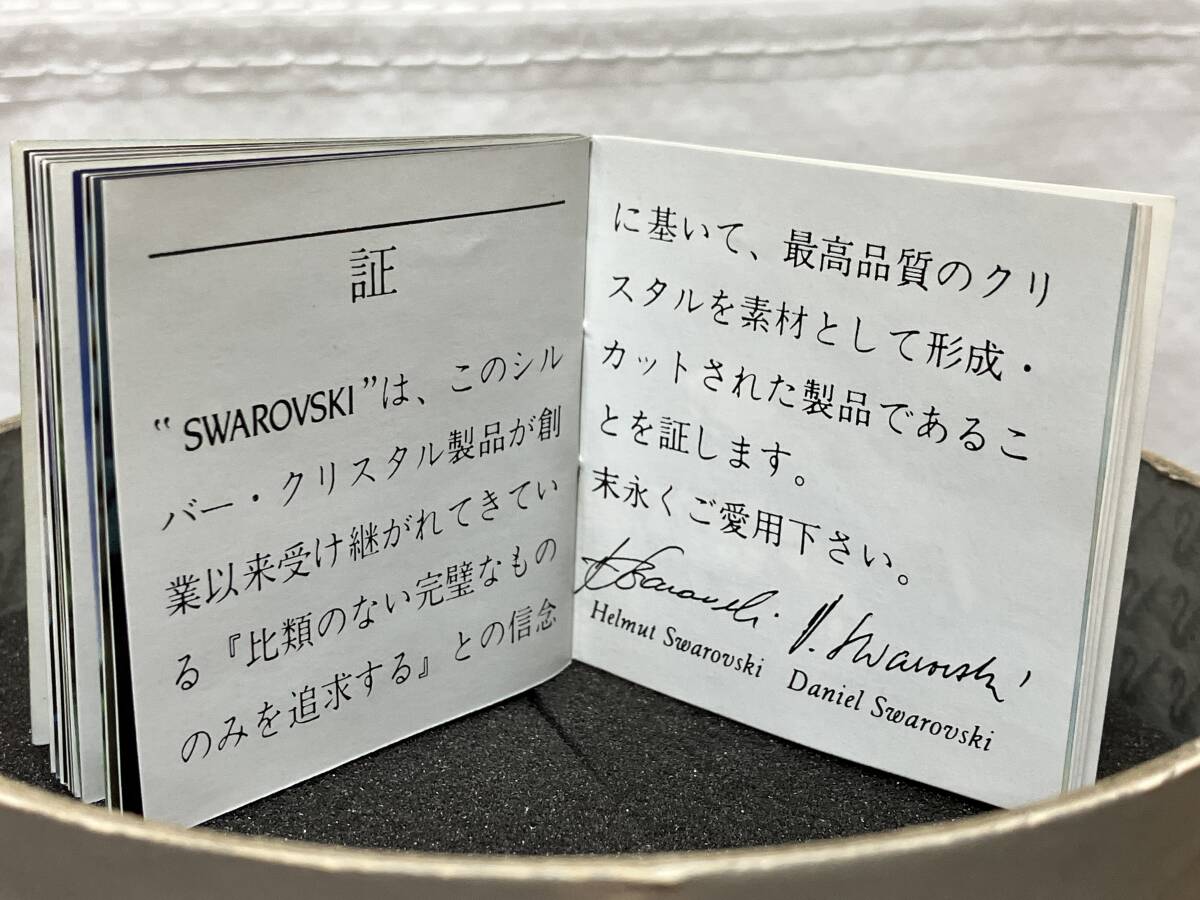 証
“SWAROVSKI”は、このシル
バー・クリスタル製品が創
業以来受け継がれてきてい
る『比類のない完璧なもの
のみを追求する』との信念
に基いて、最高品質のクリ
スタルを素材として形成・
カットされた製品であるこ
とを証します。
末永くご愛用下さい。
Swarovski D. Swarovski
Helmut Swarovski Daniel Swarovski